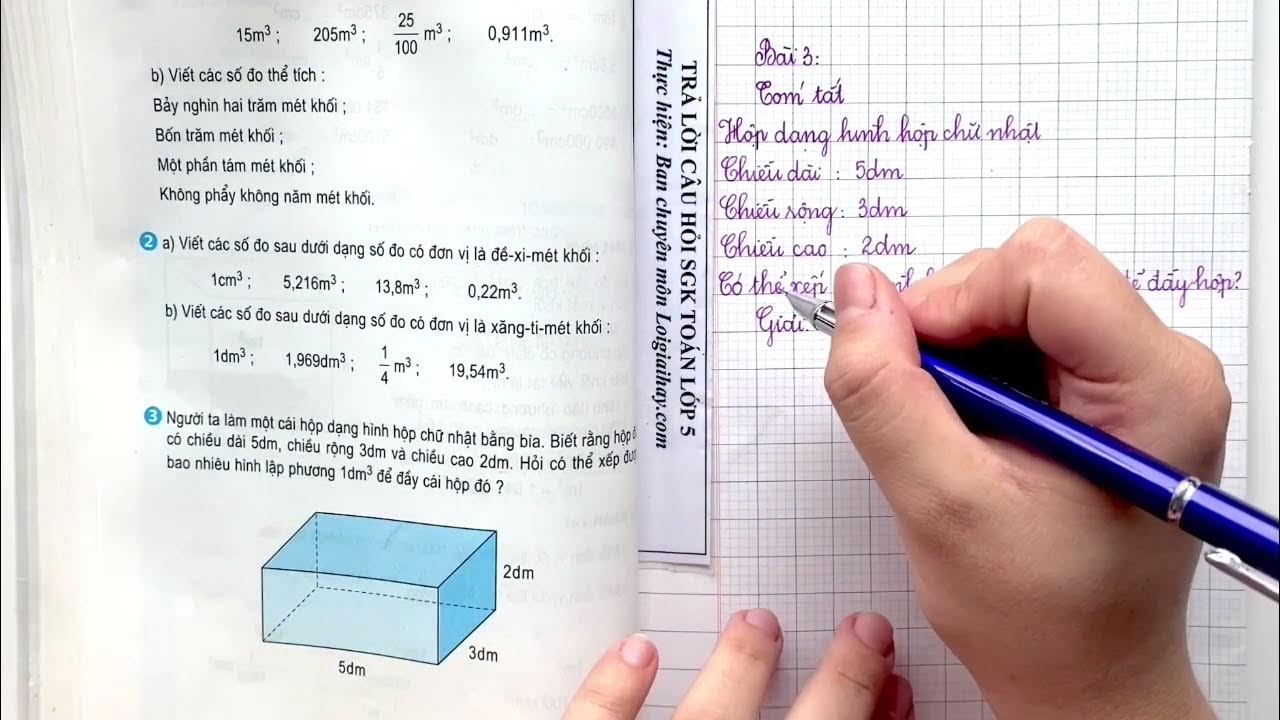 15m³ ; 205m³ ; 25/100 m³ ; 0,911m³.
b) Viết các số đo thể tích :
Bảy nghìn hai trăm mét khối ;
Bốn trăm mét khối ;
Một phần tám mét khối ;
Không phẩy không năm mét khối.
2 a) Viết các số đo sau dưới dạng số đo có đơn vị là đề-xi-mét khối :
1cm³ ; 5,216m³ ; 13,8m³ ; 0,22m³.
b) Viết các số đo sau dưới dạng số đo có đơn vị là xăng-ti-mét khối :
1dm³ ; 1,969dm³ ; 1/4 m³ ; 19,54m³.
3 Người ta làm một cái hộp dạng hình hộp chữ nhật bằng bìa. Biết rằng hộp
có chiều dài 5dm, chiều rộng 3dm và chiều cao 2dm. Hỏi có thể xếp
bao nhiêu hình lập phương 1dm³ để đầy cái hộp đó ?
2dm
3dm
5dm
TRẢ LỜI CÂU HỎI SGK TOÁN LỚP 5
Thực hiện: Ban chuyên môn Loigiaihay.com
Bài 3:
Tóm tắt
Hộp dạng hình hộp chữ nhật
Chiều dài : 5dm
Chiều rộng : 3dm
Chiều cao : 2dm
Có thể xếp đầy hộp?
Giải: